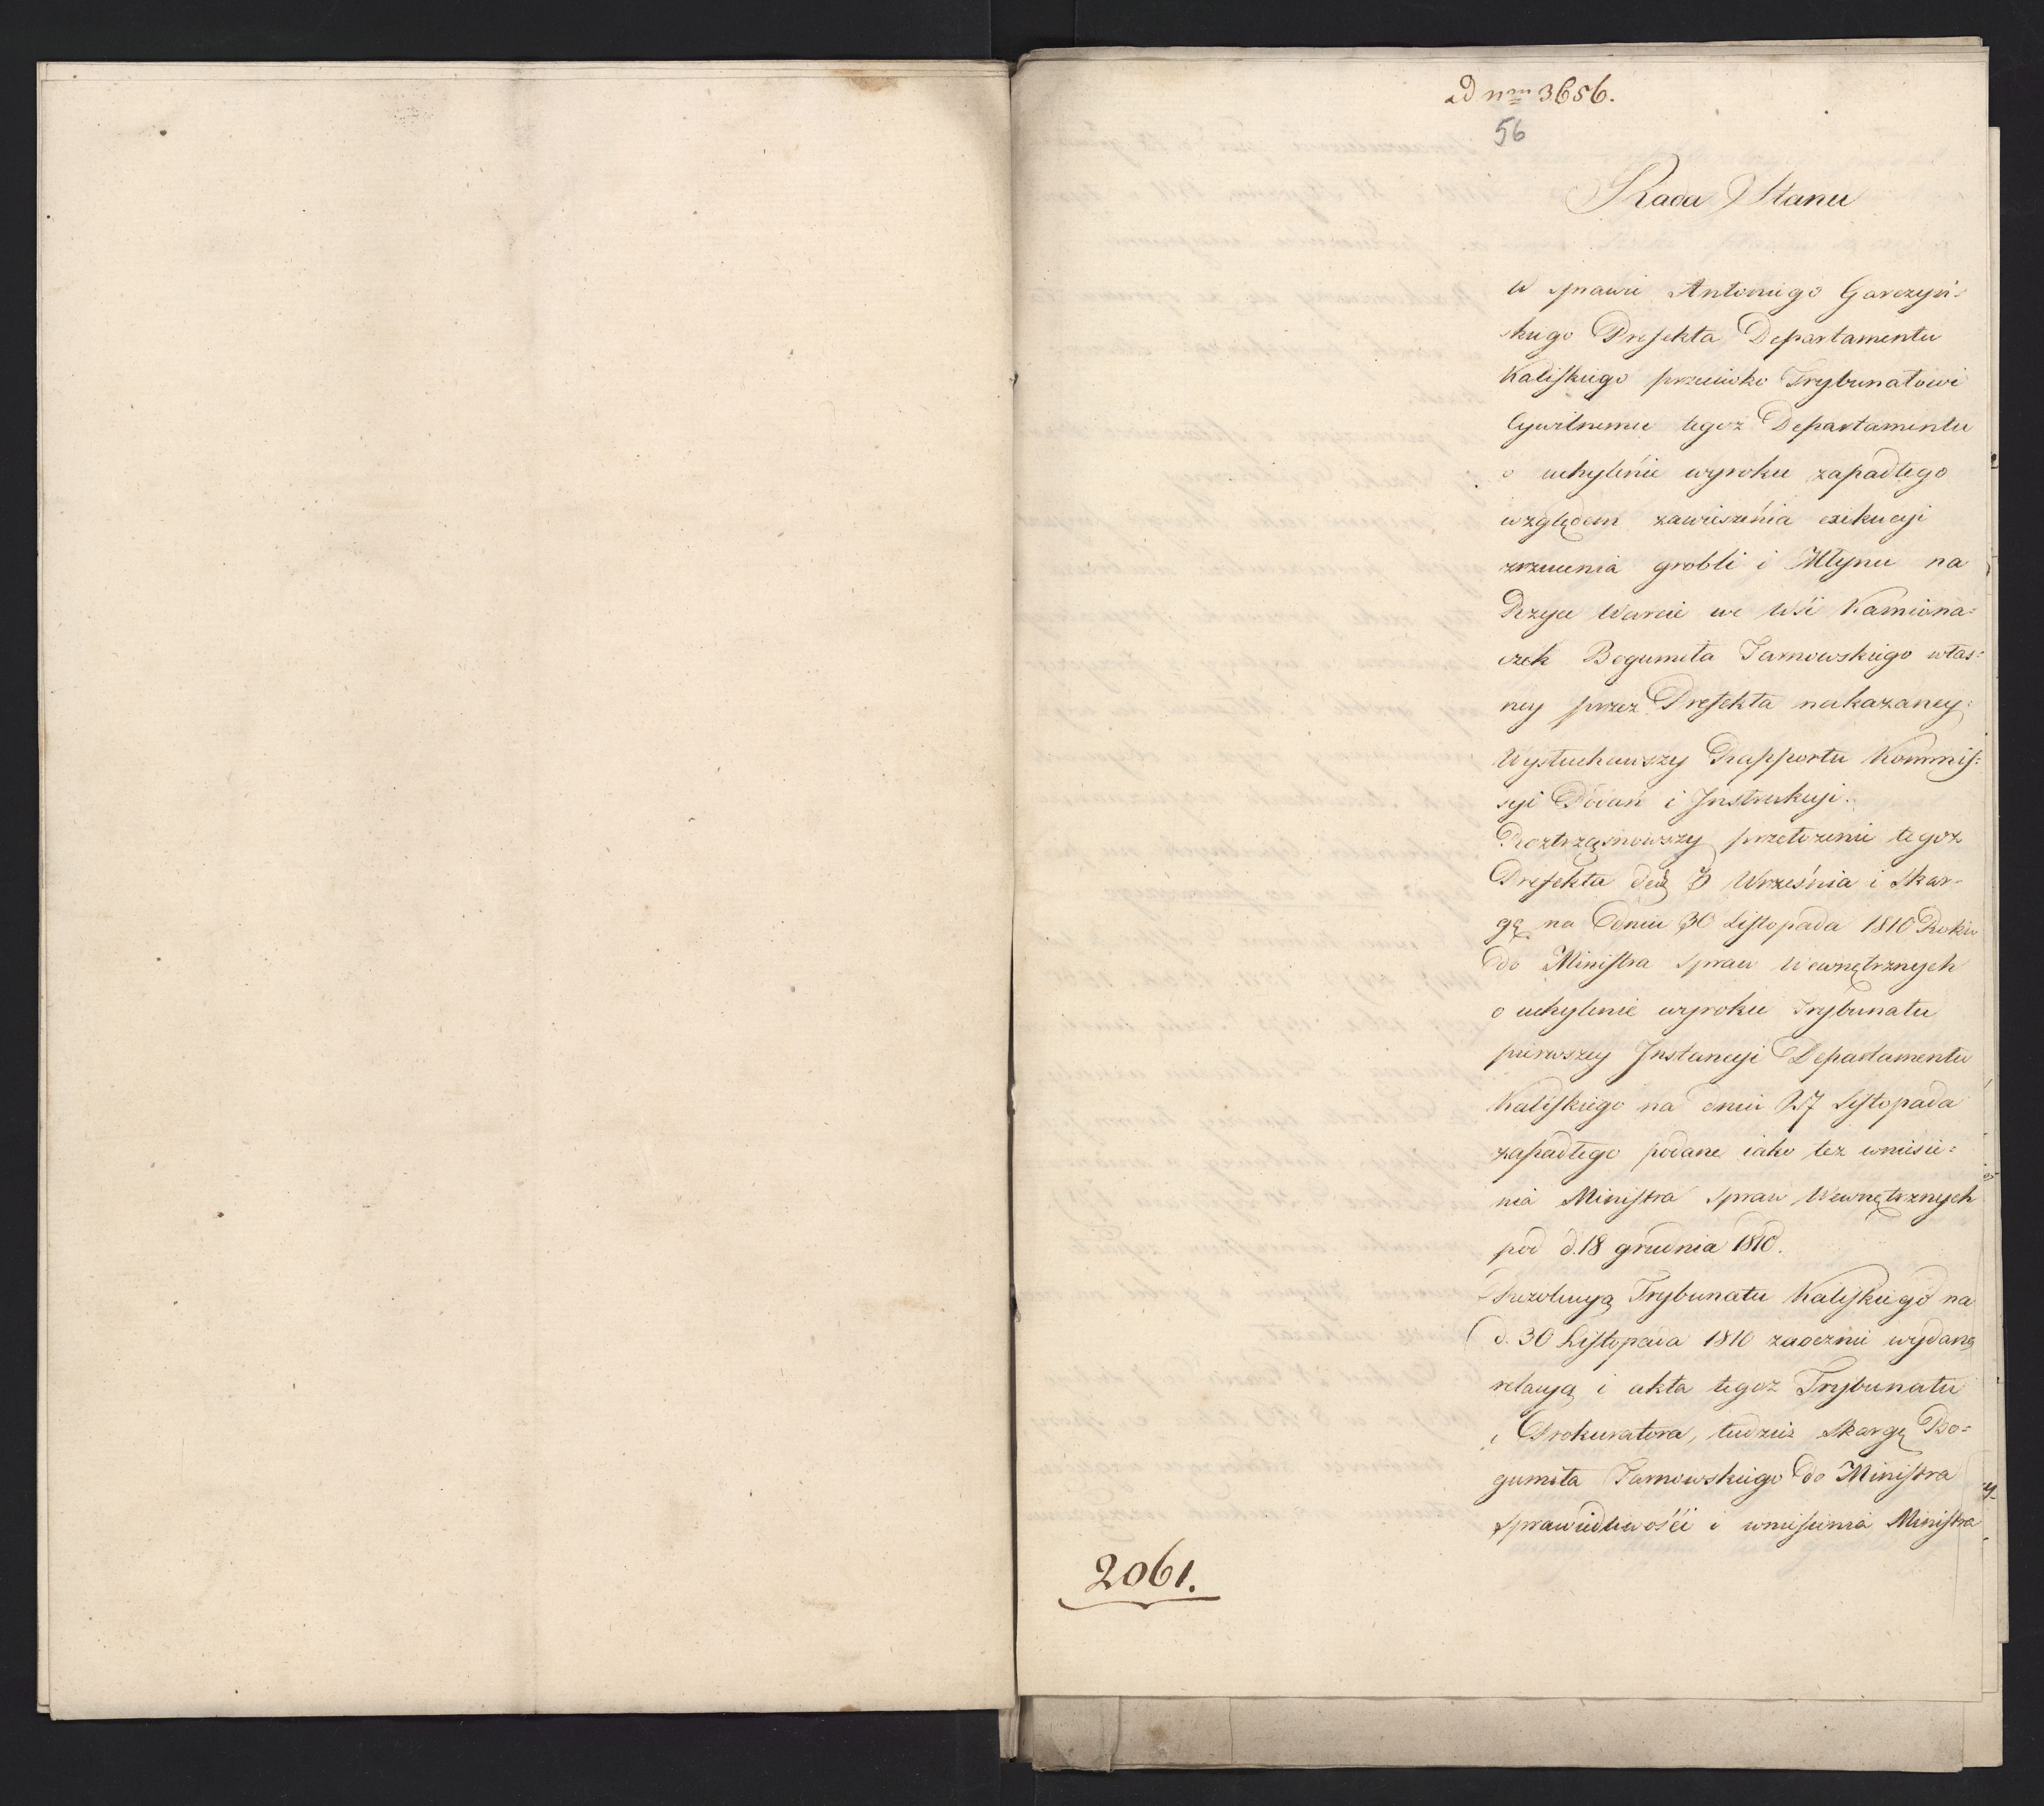 ad nrm 3656.
56
Rada Stanu
W sprawie Antoniego Garczyń-
skiego Prefekta Departamentu
Kaliskiego przeciwko Trybunałowi
Cywilnemu tegoż Departamentu
o uchylenie wyroku zapadłego
względem zawieszenia exekucyi
zrzucenia grobli i Młynu na
Rzyce Warcie we Wsi Kamiona=
czek Bogumiła Tarnowskiego włas=
ney przez Prefekta nakazaney.
Wysłuchawszy Rapportu Kommis=
syi Podań i Instrukcyi.
Roztrząsnowszy przełożenie tegoż
Prefekta Września i Skar-
gę na dniu 30 Listopada 1810 Roku
do Ministra Spraw Wewnętrznych
o uchylenie wyroku Trybunału
pierwszey Instancyi Departamentu
Kaliskiego na dniu 27 Listopada
zapadłego podane iako też wniesie=
nia Ministra Spraw Wewnętrznych
pod d. 18 grudnia 1810.
Rezolucyą Trybunału Kaliskiego na
d. 30 Listopada 1810 zaocznie wydaną
relacyą i akta tegoż Trybunału
i Prokuratora, tudzież Skargę Bo=
gumiła Tarnowskiego do Ministra
Sprawiedliwości i wniesienia Ministra
2061.